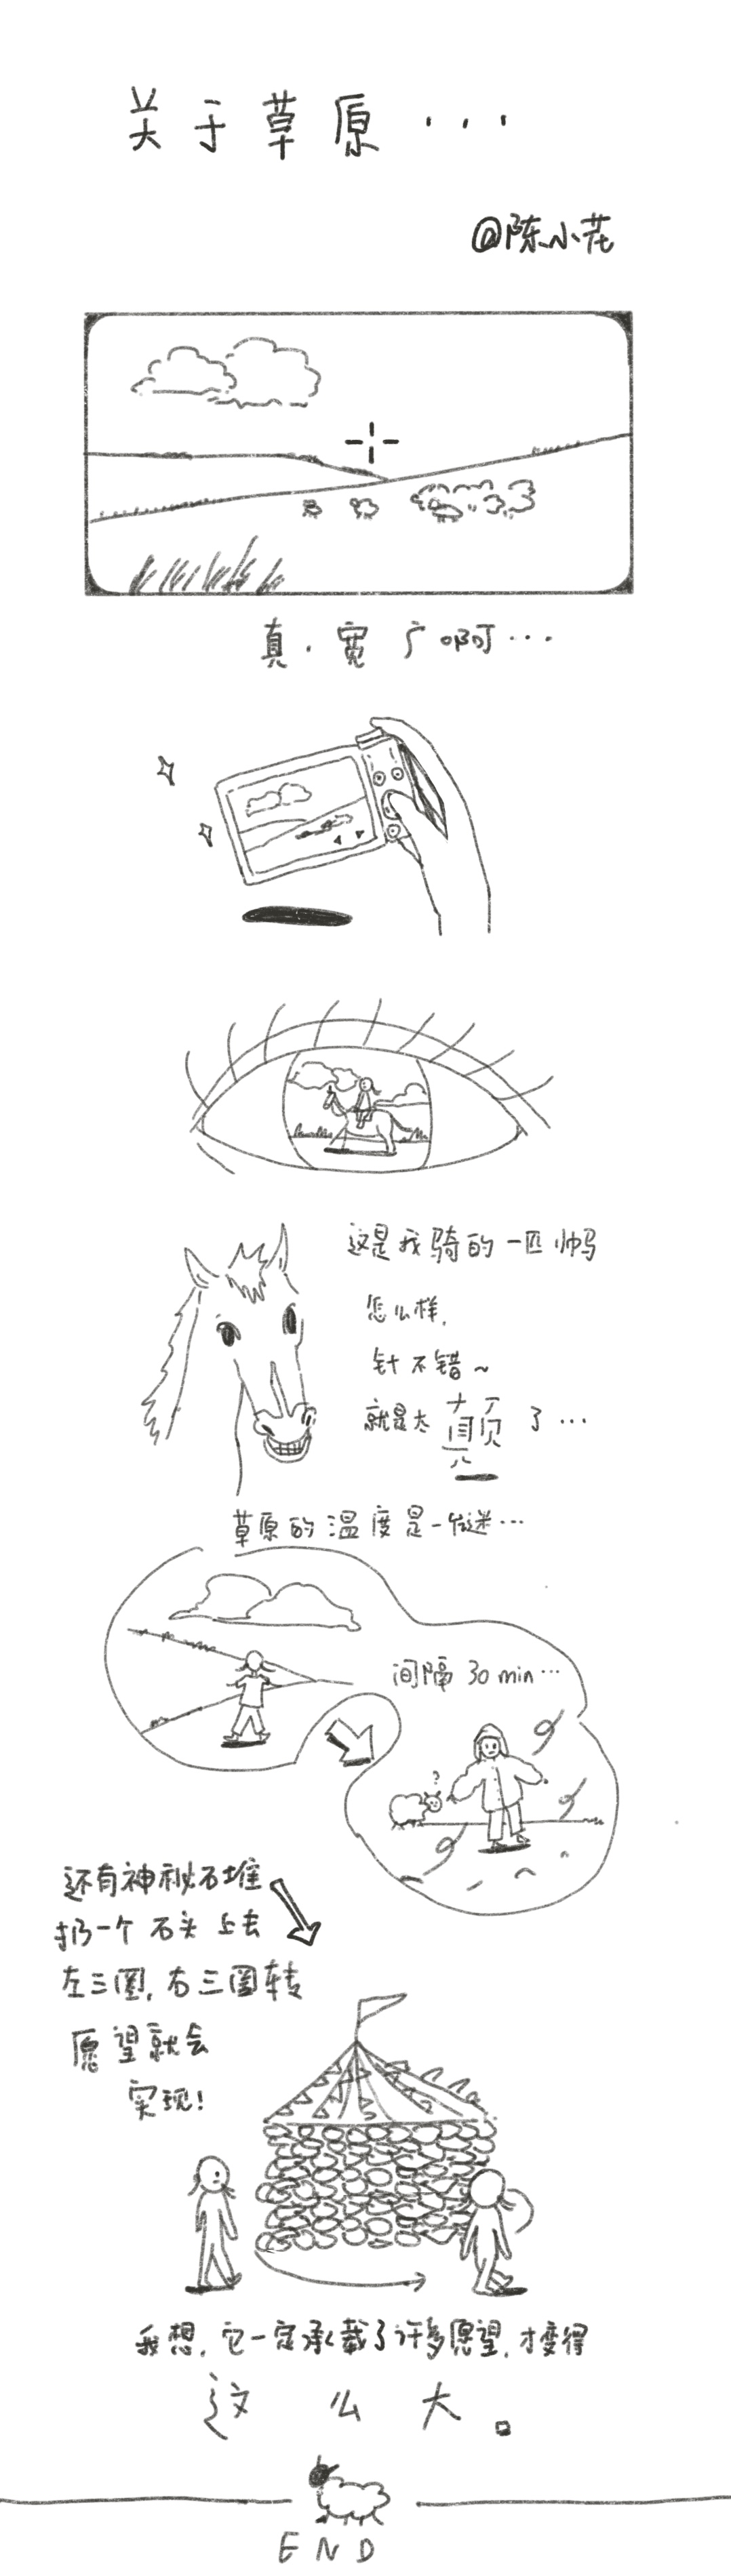 关于草原···
@陈小花
真·宽广啊···
这是我骑的一匹帅马
怎么样,
针不错~
就是太颠了···
草原的温度是一个谜···
间隔 30 min···
?
还有神秘石堆
扔一个石头上去
左三圈,右三圈转
愿望就会
实现!
我想,它一定承载了许多愿望,才变得
这么大。
END